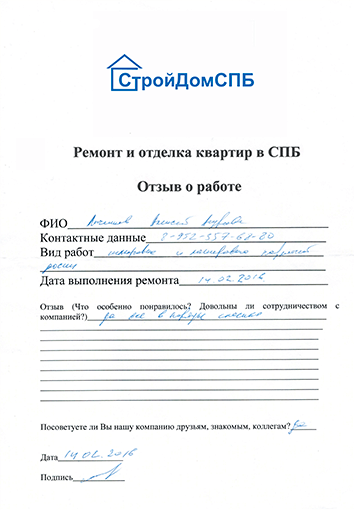 СтройДомСПБ
Ремонт и отделка квартир в СПБ
Отзыв о работе
ФИО Алексей
Контактные данные 8-952-357-64-20
Вид работ и
Дата выполнения ремонта 14.02.2016
Отзыв (Что особенно понравилось? Довольны ли сотрудничеством с
компанией?) да все в порядке спасибо
Посоветуете ли Вы нашу компанию друзьям, знакомым, коллегам? да
Дата 14.02.2016
Подпись